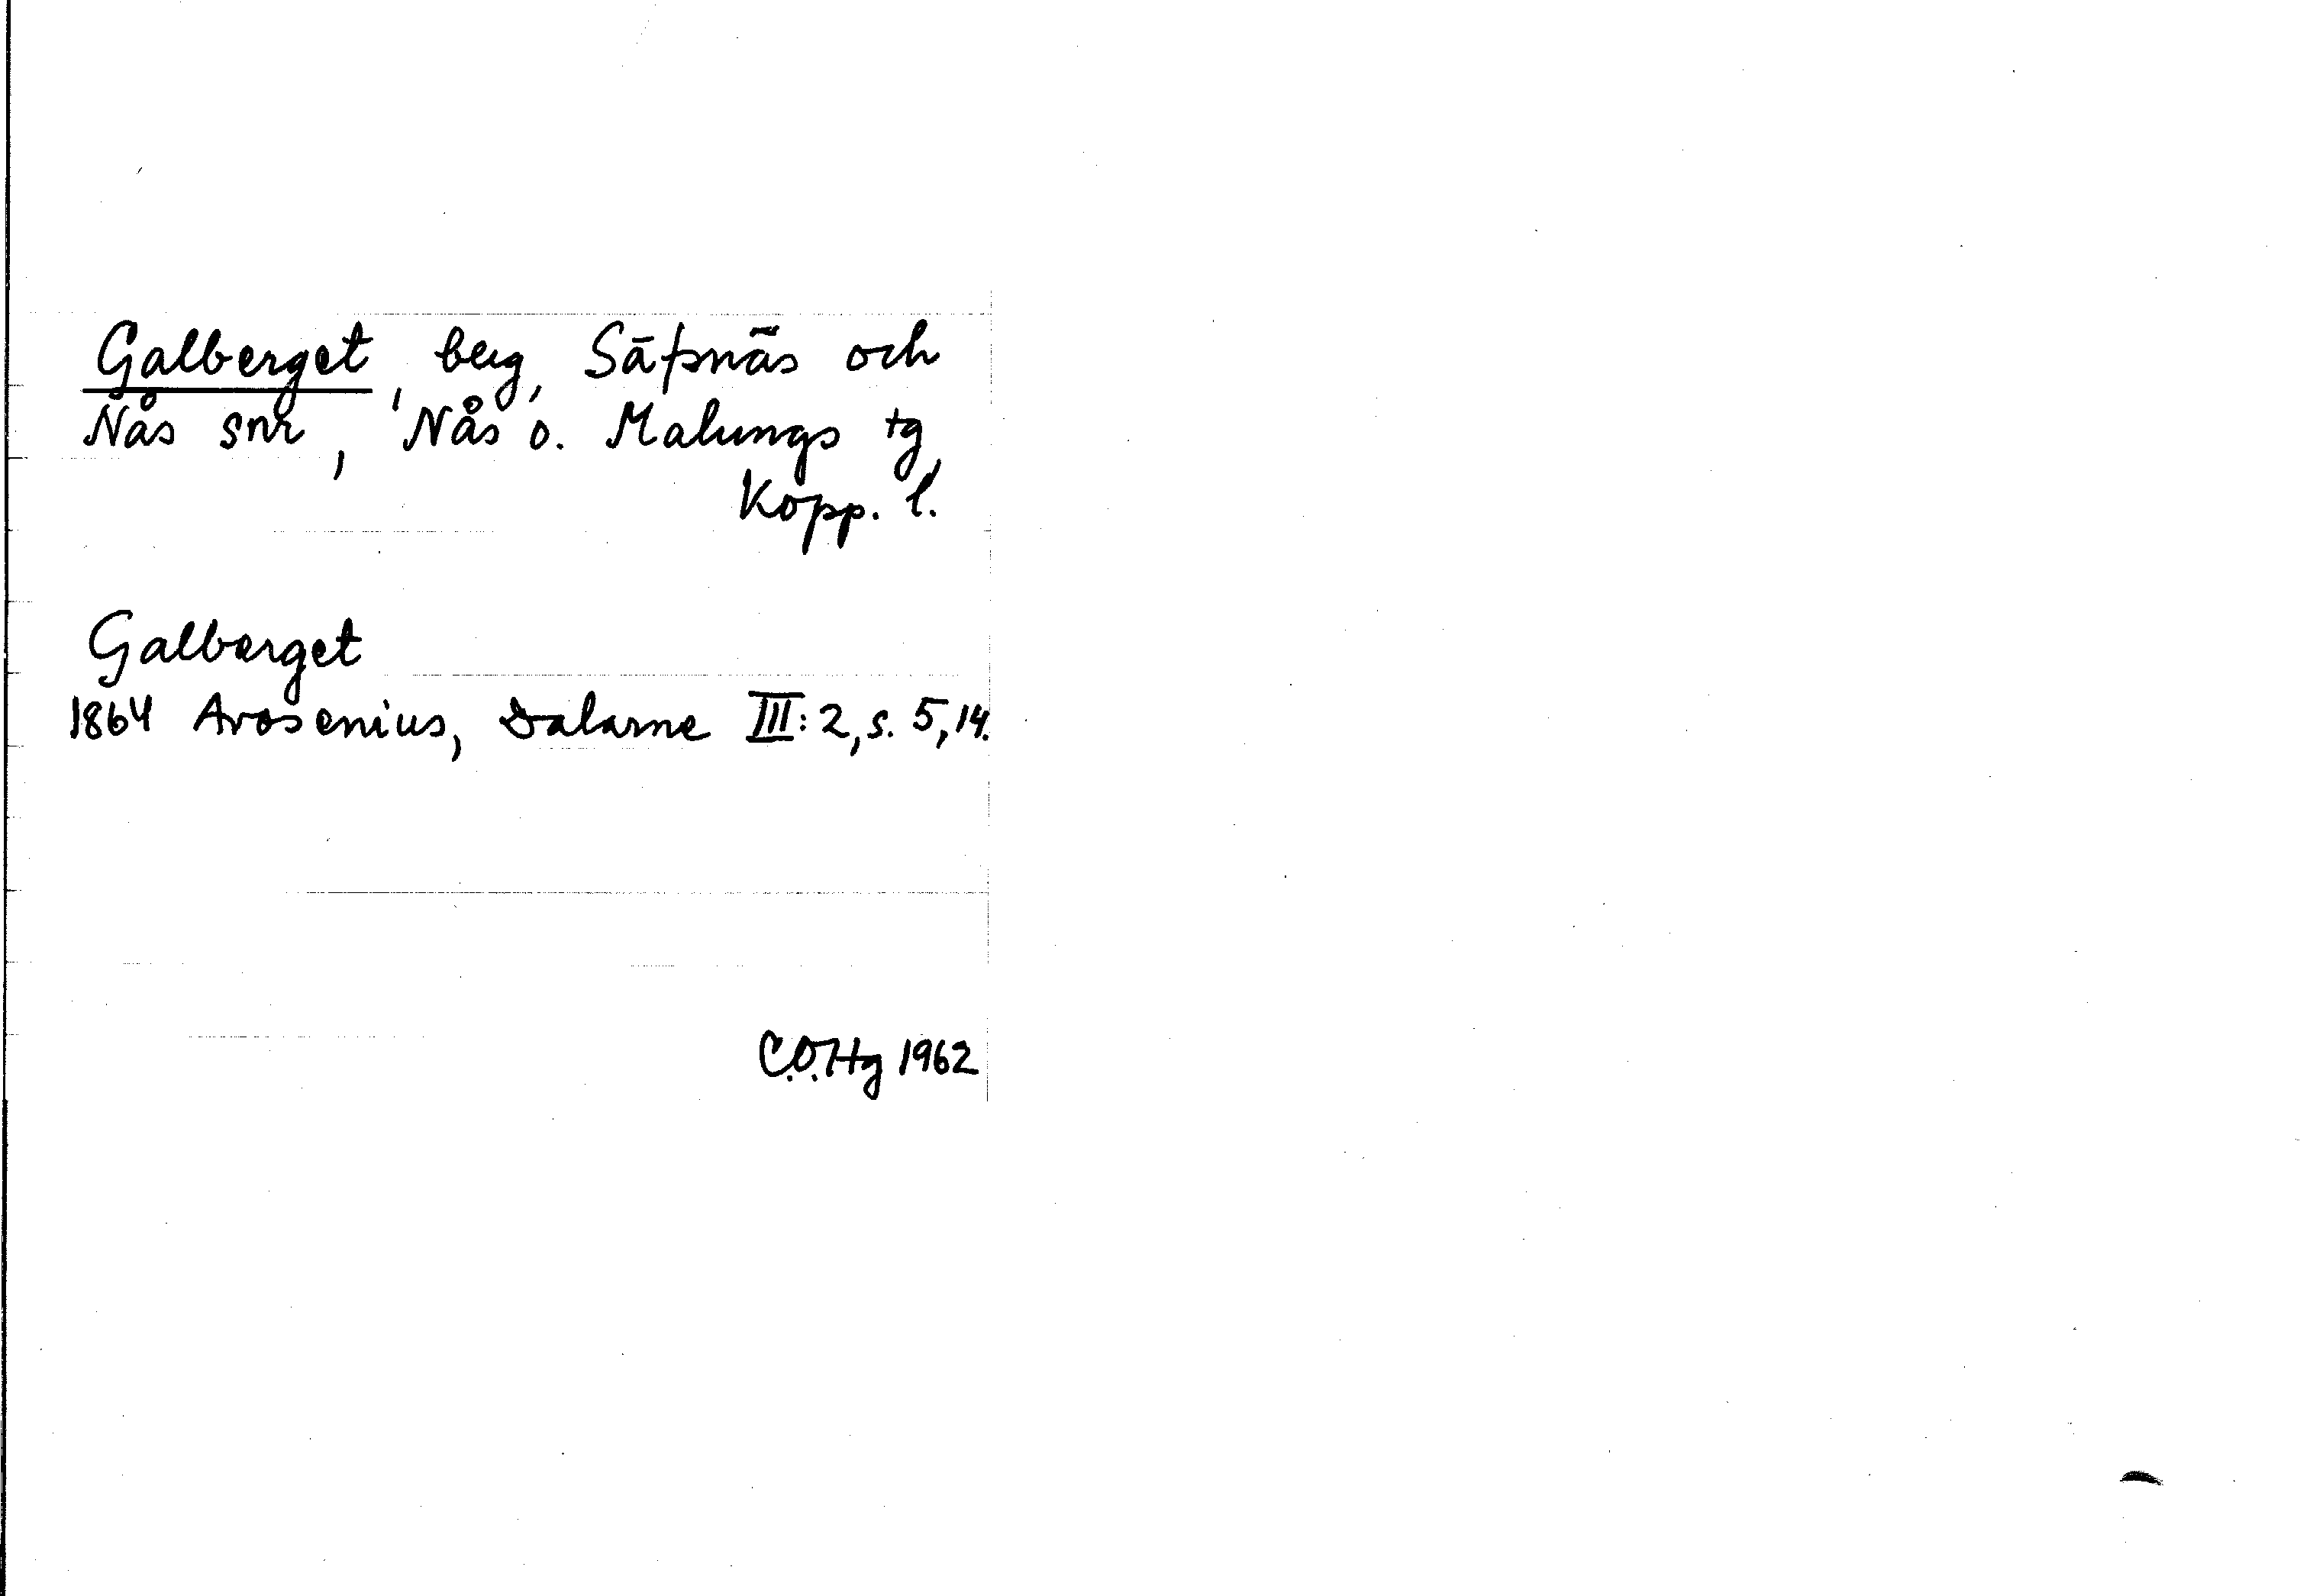 Galberget, berg, Säfsnäs och
Nås snr, Nås o. Malungs tg,
Kopp. l.
Galberget
1864 Arosenius, Dalarne III:2, s. 5, 14.
C.O.Hg 1962